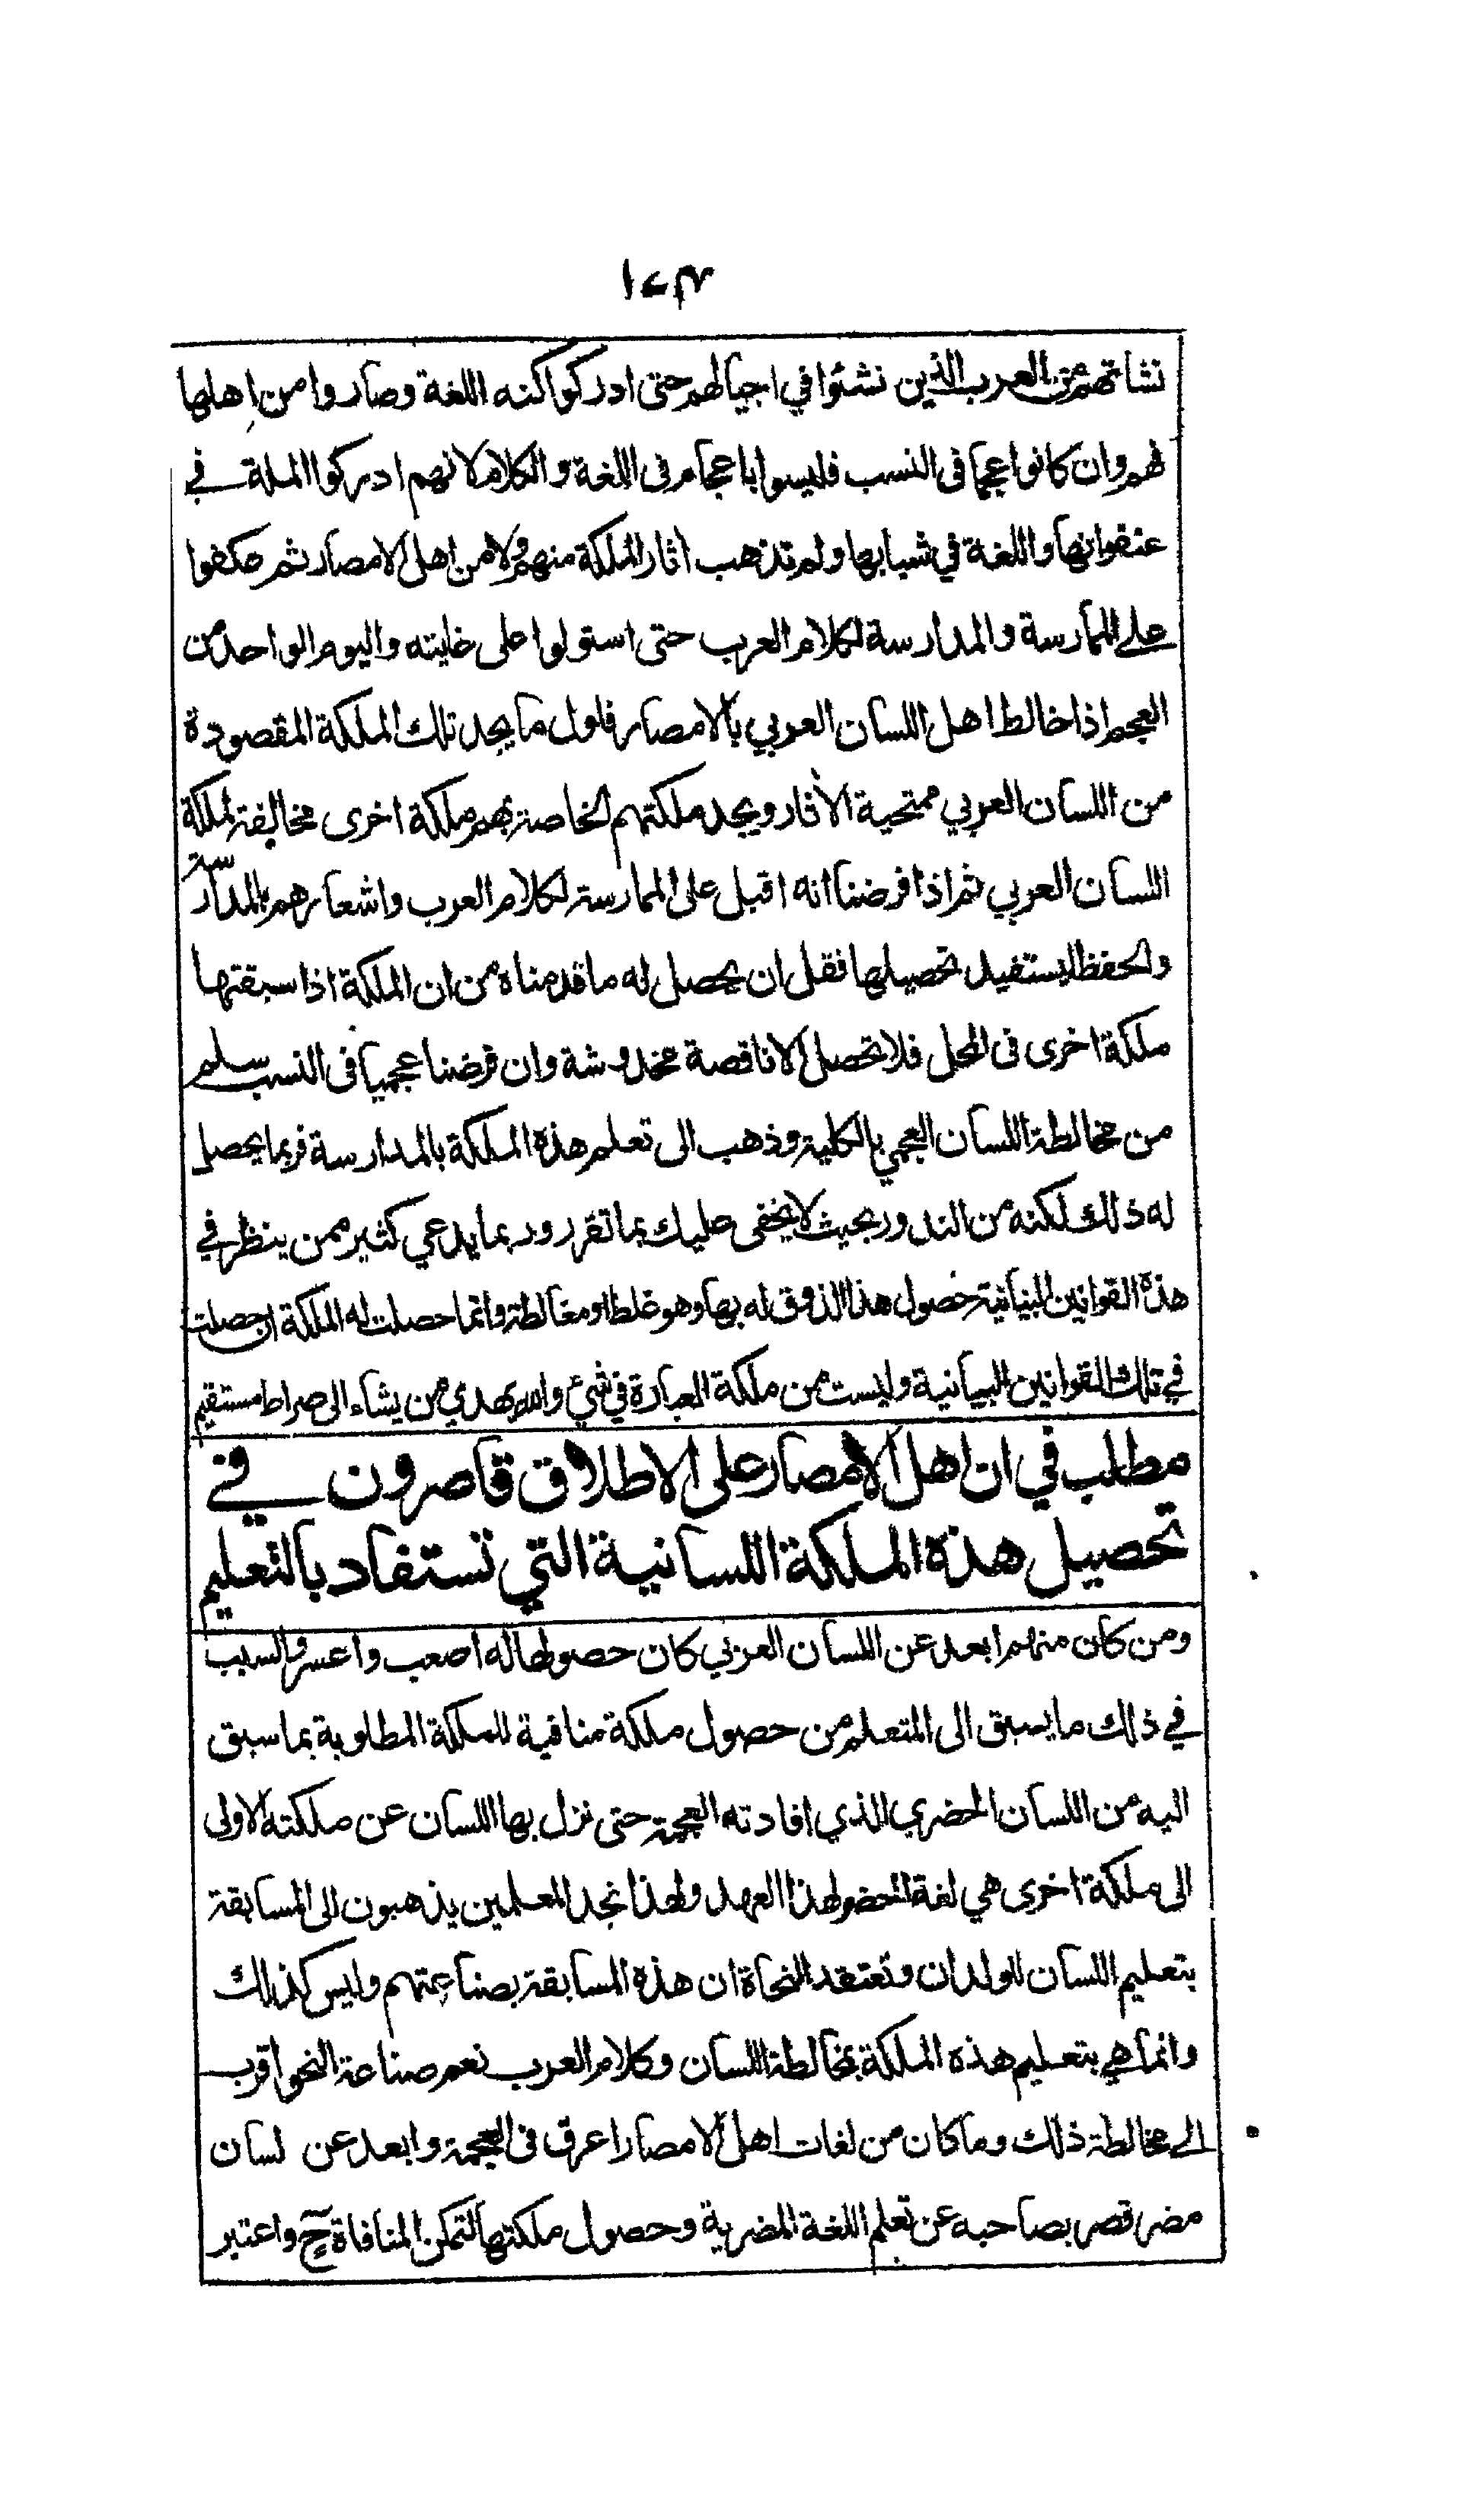 ١٤٣
نشاتهم من العرب الذين نشئوا في اجيالهم حتى ادركوا كنه اللغة وصاروا من اهلها
فهم وان كانوا عجما في النسب فليسوا باعجام في اللغة والكلام لانهم ادركوا الملة في
عنفوانها واللغة في شبابها ولم تذهب اثار الملكة منهم ولا من اهل الامصار ثم عكفوا
على الممارسة والمدارسة لكلام العرب حتى استولوا على غايته واليوم الواحد من
العجم اذا خالط اهل اللسان العربي بالامصار فاول ما يجد تلك الملكة المقصودة
من اللسان العربي ممتحية الآثار ويجد ملكتهم الخاصة بهم ملكة اخرى مخالفة لملكة
اللسان العربي ثم اذا فرضنا انه اقبل على الممارسة لكلام العرب واشعارهم بالمدارسة
والحفظ ليستفيد تحصيلها فقل ان يحصل له ما قدمناه من ان الملكة اذا سبقتها
ملكة اخرى في المحل فلا تحصل الا ناقصة مخدوشة وان فرضنا عجميا في النسب سلم
من مخالطة اللسان العجمي بالكلية وذهب الى تعلم هذه الملكة بالمدارسة فربما يحصل
له ذلك لكنه من الندور بحيث لا يخفى عليك بما تقرر وربما يدعي كثير ممن ينظر في
هذه القوانين البيانية حصول هذا الذوق له بها وهو غلط او مغالطة وانما حصلت له الملكة ان حصلت
في تلك القوانين البيانية وليست من ملكة العبارة في شيء والله يهدي من يشاء الى صراط مستقيم
مطلب في ان اهل الامصار على الاطلاق قاصرون في
تحصيل هذه الملكة اللسانية التي تستفاد بالتعليم
ومن كان منهم ابعد عن اللسان العربي كان حصولها له اصعب واعسر والسبب
في ذلك ما يسبق الى المتعلم من حصول ملكة منافية للملكة المطلوبة بما سبق
اليه من اللسان الحضري الذي افادته العجمة حتى نزل بها اللسان عن ملكته الاولى
الى ملكة اخرى هي لغة الحضر لهذا العهد ولهذا نجد المعلمين يذهبون الى المسابقة
بتعليم اللسان للولدان وتعتقد النحاة ان هذه المسابقة بصناعتهم وليس كذلك
وانما هي بتعليم هذه الملكة بمخالطة اللسان وكلام العرب نعم صناعة النحو اقرب
الى مخالطة ذلك وما كان من لغات اهل الامصار اعرق في العجمة وابعد عن لسان
مضر قصر بصاحبه عن تعلم اللغة المضرية وحصول ملكتها لتمكن المنافاة ح واعتبر